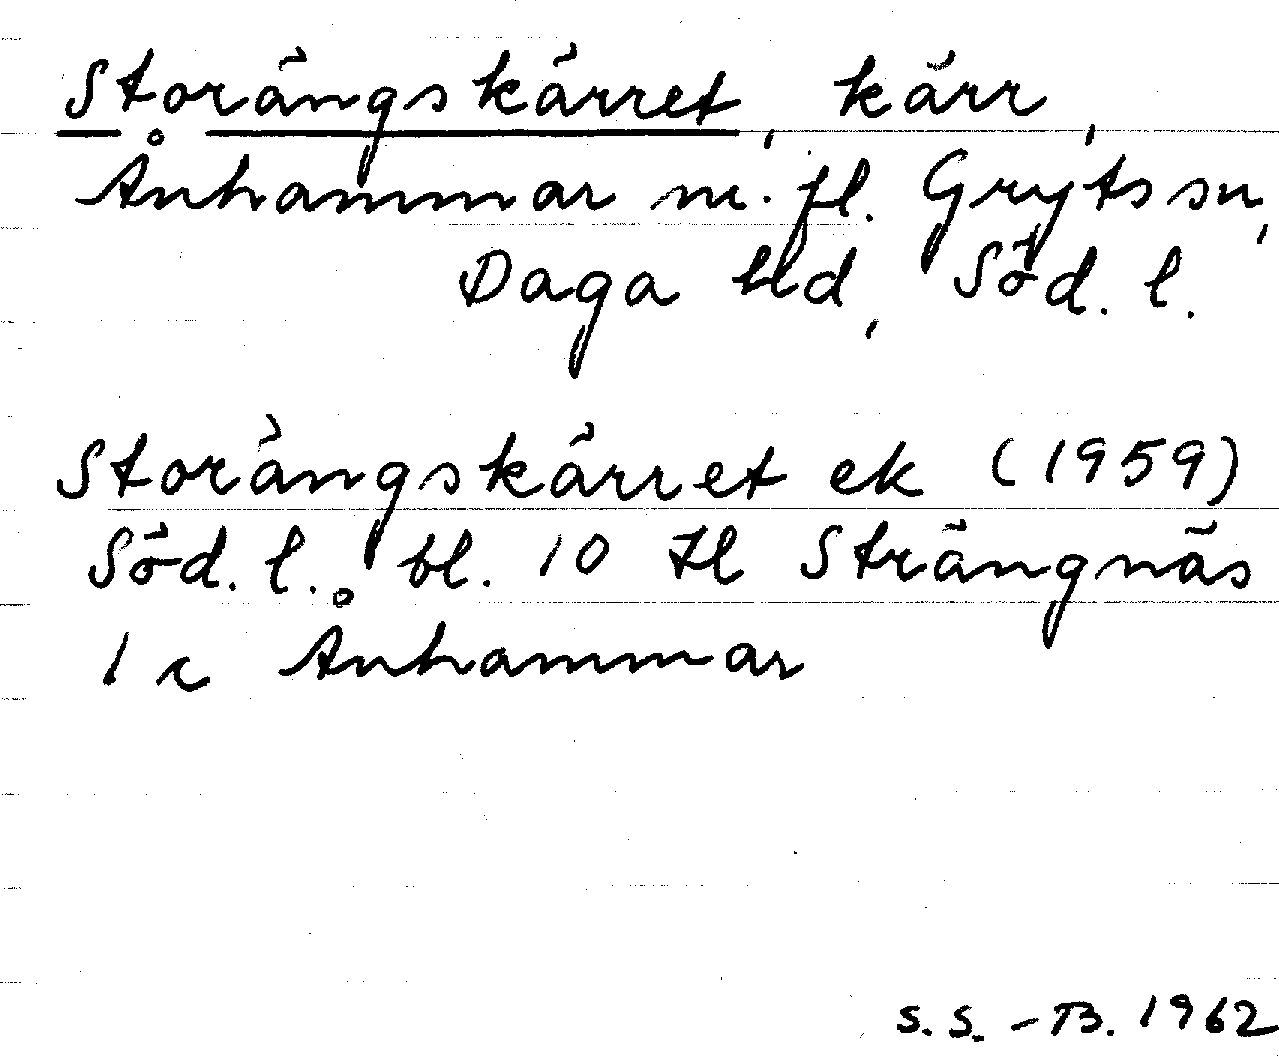 Storängskärret, kärr,
Ånhammar m. fl. Gryts sn,
Daga hd, Söd. l.
Storängskärret ek (1959)
Söd. l. bl. 10 Hl Strängnäs
1 c Ånhammar
S. S. - B. 1962